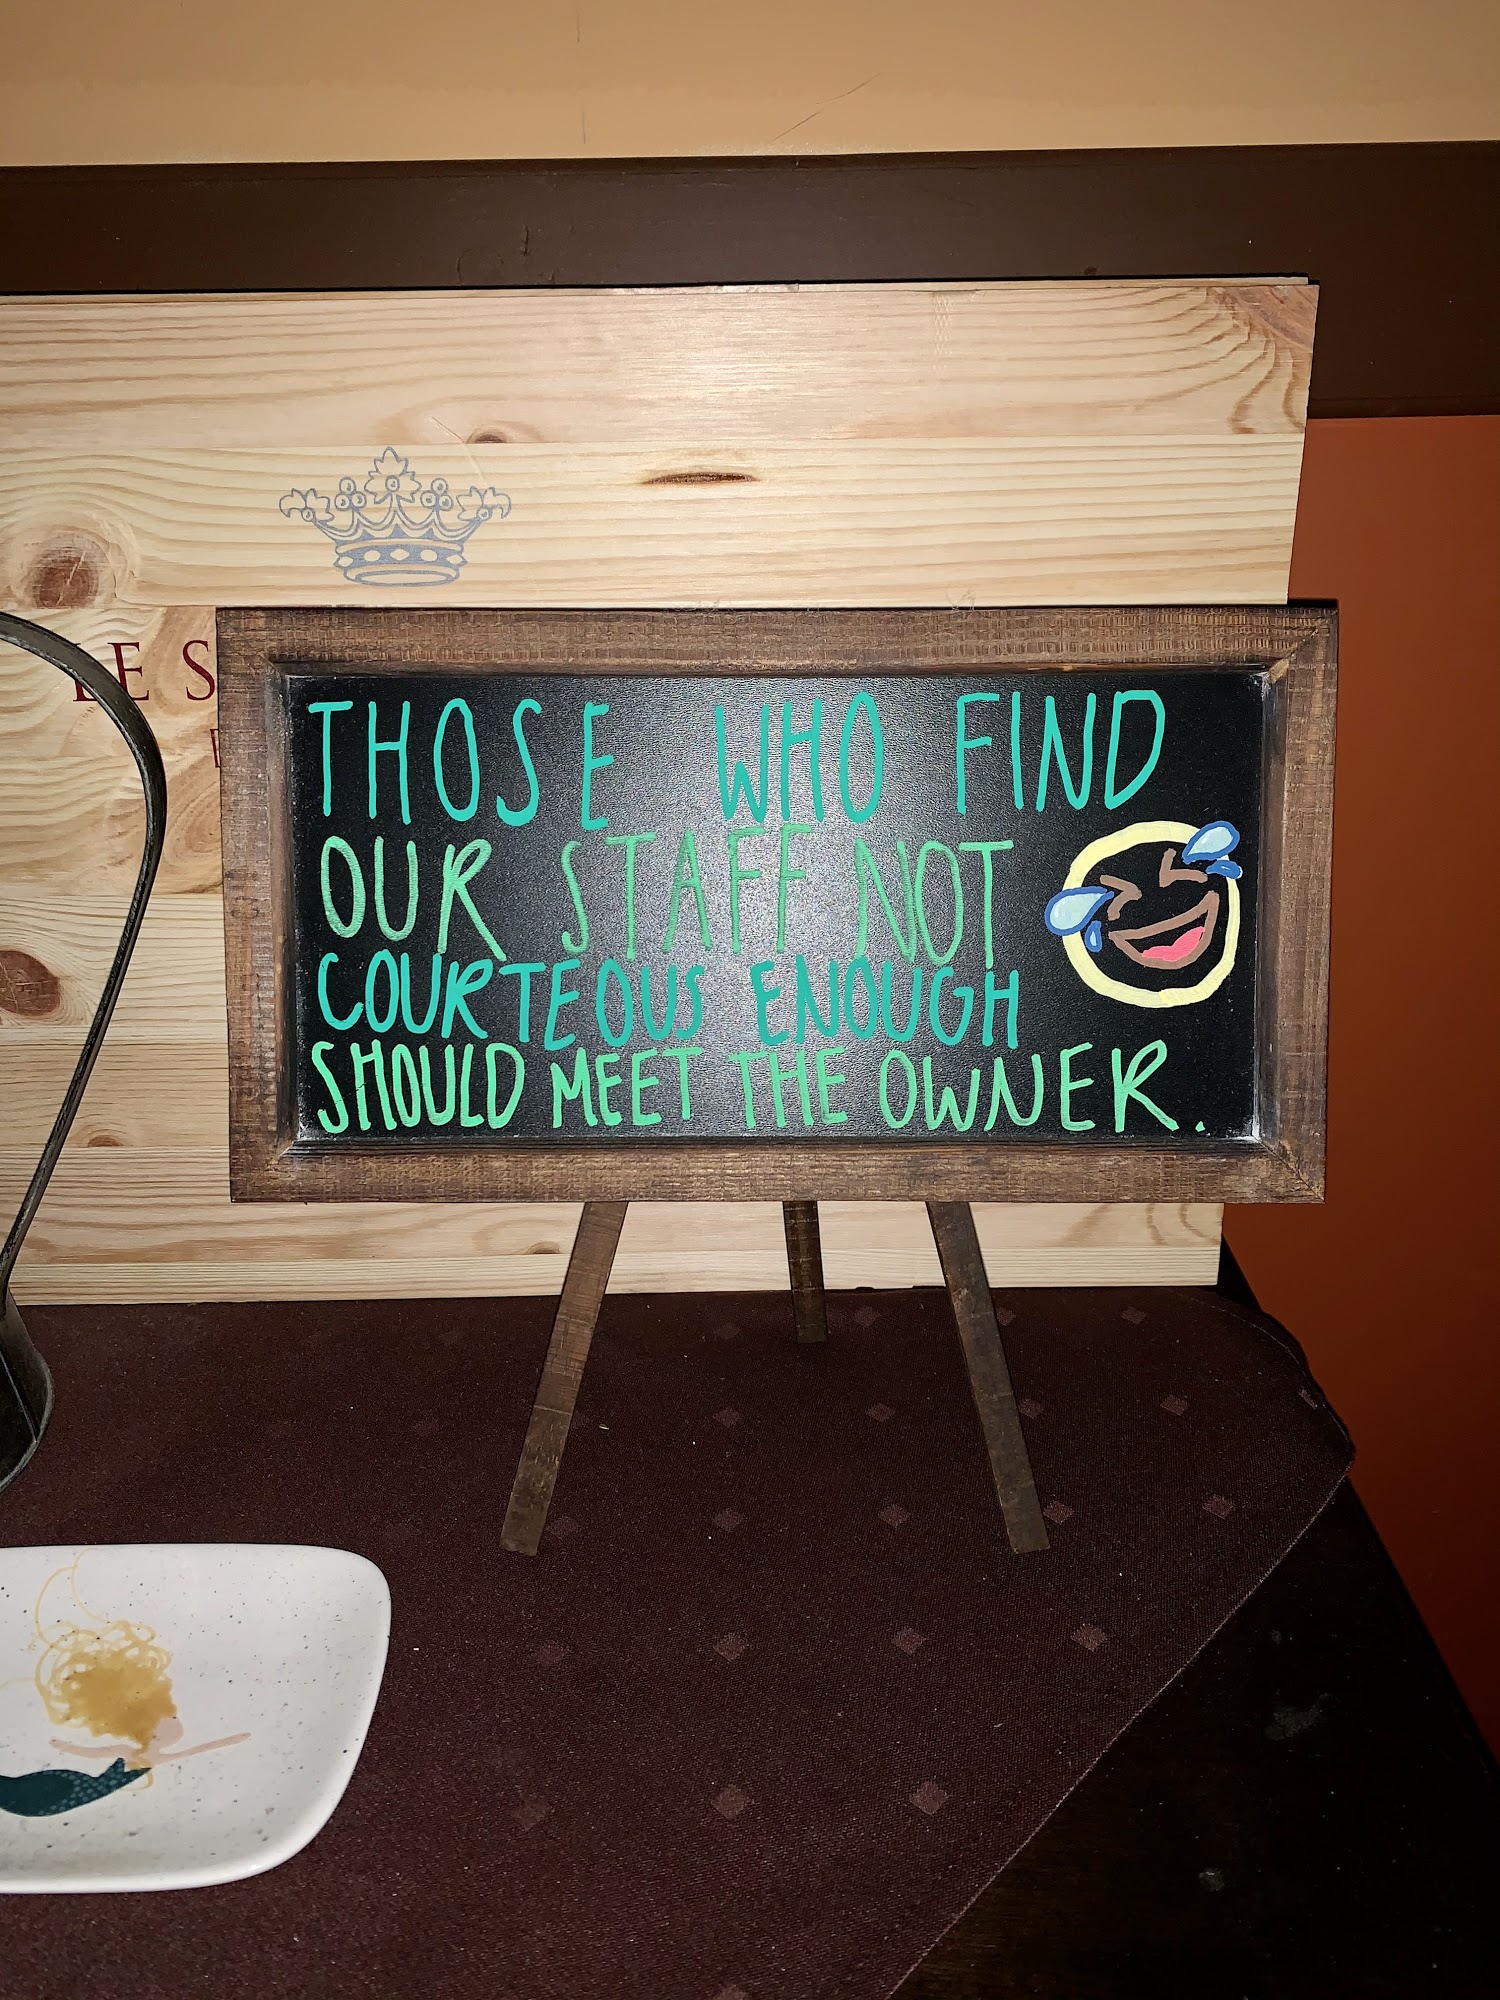 LE S
THOSE WHO FIND
OUR STAFF NOT
COURTEOUS ENOUGH
SHOULD MEET THE OWNER.